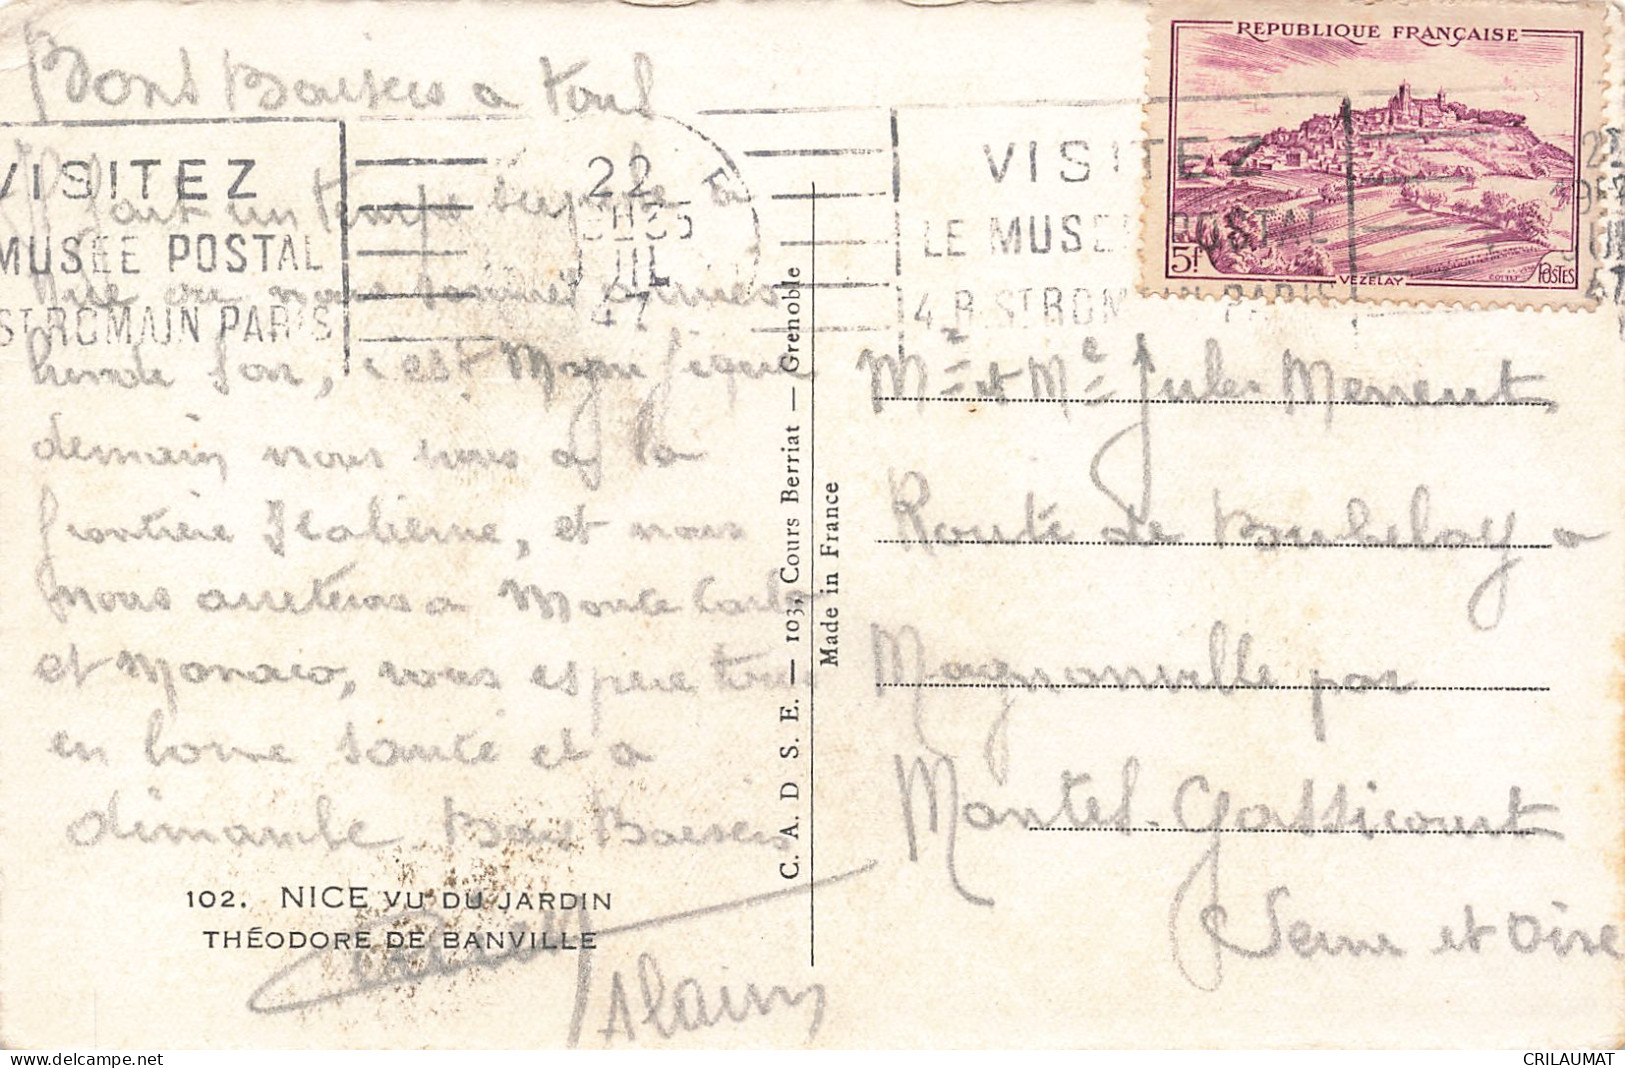 Bons Baisers a tous
Il fait un temps superbe a
Nice ou nous sommes arrivés
lundi soir, c'est Magnifique
demain nous irons a la
frontière Italienne, et nous
nous arreterons a Monte Carlo
et Monaco, vous espère tous
en bonne santé et a
dimanche Bons Baisers
Alain
102. NICE VU DU JARDIN
THÉODORE DE BANVILLE
C. A. D S. E. — 103, Cours Berriat — Grenoble
Made in France
VISITEZ
MUSEE POSTAL
ST ROMAIN PARIS
22
III
47
VISITEZ
LE MUSEE POSTAL
4 R. ST ROMAIN PARIS
REPUBLIQUE FRANÇAISE
5f
VEZELAY
POSTES
Mr et Me Jules Menent
Route de
Magnanville par
Mantes-Gassicourt
Seine et Oise
CRILAUMAT
www.delcampe.net